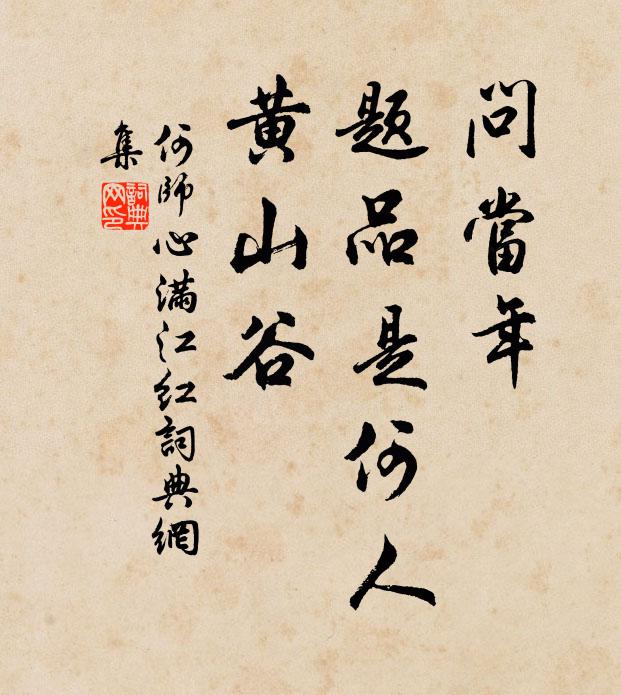 問當年
題品是何人
黄山谷
何師心滿江紅詞典網
集
詞典
网印